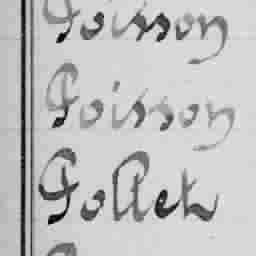 Poisson
Poisson
Pollet